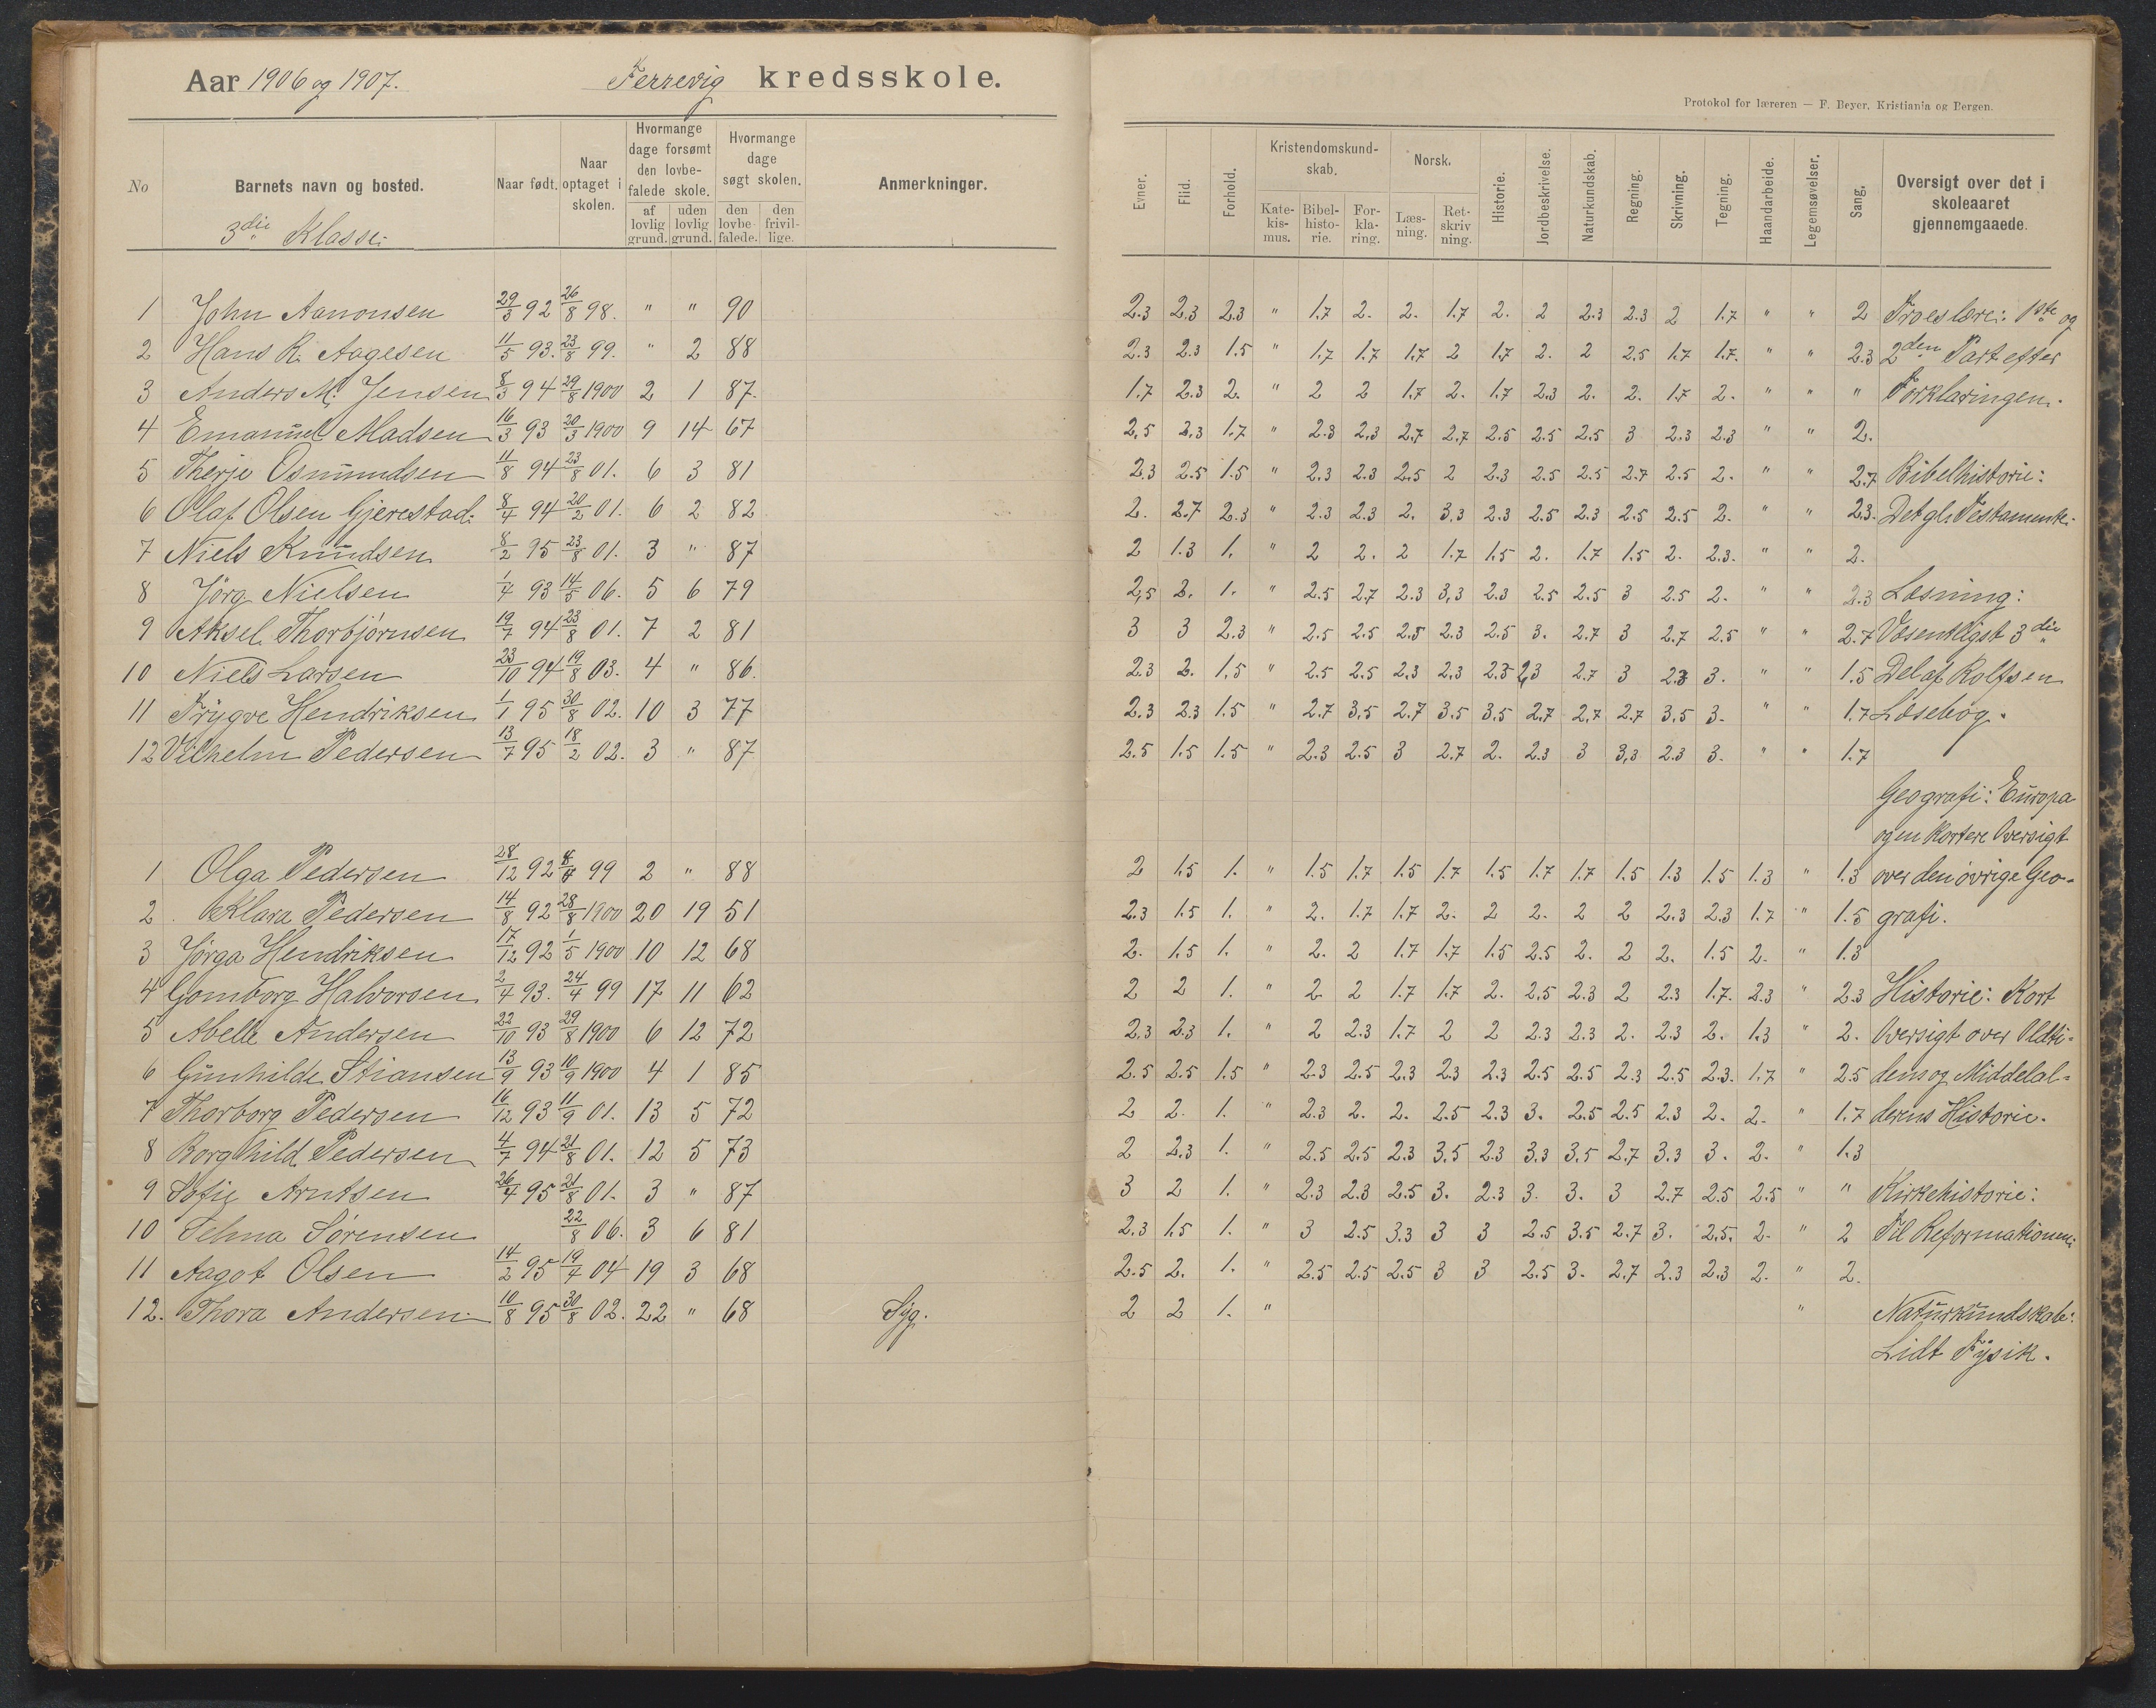 Aar 1906 og 1907. Ferrevig kredsskole.
Protokol for læreren — F. Beyer, Kristiania og Bergen.
No
Barnets navn og bosted.
Naar født.
Naar optaget i skolen.
Hvormange dage forsømt den lovbefalede skole.
af lovlig grund.
uden lovlig grund.
Hvormange dage søgt skolen.
den lovbefalede.
den frivillige.
Anmerkninger.
Evner.
Flid.
Forhold.
Kristendomskundskab.
Katekismus.
Bibelhistorie.
Forklaring.
Norsk.
Læsning.
Retskrivning.
Historie.
Jordbeskrivelse.
Naturkundskab.
Regning.
Skrivning.
Tegning.
Haandarbeide.
Legemsøvelser.
Sang.
Oversigt over det i skoleaaret gjennemgaaede.
3die Klasse:
1 John Aanonsen 29/3 92 26/8 98. " " 90 2.3 2.3 2.3 " 1.7 2. 2. 1.7 2. 2 2.3 2.3 2 1.7 " " 2 Troeslære: 1ste og
2 Hans R. Aagesen 11/5 93. 23/8 99. " 2 88 2.3 2.3 1.5 " 1.7 1.7 1.7 2 1.7 2. 2 2.5 1.7 1.7. " " 2.3 2den Part efter
3 Anders M. Jensen 8/3 94 29/8 1900 2 1 87. 1.7 2.3 2. " 2 2 1.7 2. 1.7 2.3 2. 2. 1.7 2. " " " Forklaringen.
4 Emanuel Madsen 16/3 93 20/3 1900 9 14 67 2,5 2.3 1.7 " 2.3 2.3 2.7 2.7 2.5 2.5 2.5 3 2.3 2.3 " " 2.
5 Therje Osmundsen 11/8 94 23/8 01. 6 3 81 2.3 2.5 1.5 " 2.3 2.3 2.5 2 2.3 2.5 2.5 2.7 2.5 2. " " 2.7 Bibelhistorie:
6 Olaf Olsen Gjerestad: 8/4 94 20/2 01. 6 2 82 2. 2.7 2.3 " 2.3 2.3 2. 3,3 2.3 2.5 2.3 2.5 2.5 2. " " 2.3. Det gl. Testamente.
7 Niels Knudsen 8/2 95 23/8 01. 3 " 87 2 1.3 1. " 2 2. 2 1.7 1.5 2. 1.7 1.5 2. 2.3. " " 2.
8 Jørg Nielsen 1/4 93 14/5 06. 5 6 79 2,5 2. 1. " 2.5 2.7 2.3 3,3 2.3 2.5 2.5 3 2.5 2. " " 2.3 Læsning:
9 Aksel Thorbjørnsen 19/7 94 23/8 01. 7 2 81 3 3 2.3 " 2.5 2.5 2.5 2.3 2.5 3. 2.7 3 2.7 2.5 " " 2.7 Væsentligst 3die
10 Niels Larsen 23/10 94 19/8 03. 4 " 86. 2.3 2. 1.5 " 2.5 2.5 2,3 2,3 2.3 2,3 2.7 3 2.3 3. " " 1.5 Del af Rolfsen
11 Trygve Hendriksen 1/1 95 30/8 02. 10 3 77 2.3 2.3 1.5 " 2.7 3.5 2.7 3.5 3.5 2,7 2,7 2.7 3.5 3. " " 1.7 Læsebog.
12 Vilhelm Pedersen 13/7 95 18/2 02. 3 " 87 2.5 1.5 1.5 " 2.3 2.5 3 2.7 2. 2.3 3 3,3 2.3 3. " " 1.7
Geografi: Europa
og en kortere Oversigt
1 Olga Pedersen 28/12 92 8/4 99 2 " 88 2 1.5 1. " 1.5 1.7 1.5 1.7 1.5 1.7 1.7 1.5 1.3 1.5 1.3 " 1.3 over den øvrige Geo-
2 Klara Pedersen 14/8 92 28/8 1900 20 19 51 2.3 1.5 1. " 2. 1.7 1.7 2. 2 2. 2 2 2.3 2.3 1.7 " 1.5 grafi.
3 Jørga Hendriksen 17/12 92 1/5 1900 10 12 68 2. 1.5 1. " 2. 2 1.7 1.7 1.5 2.5 2. 2 2. 1.5 2. " 1.3
4 Gomborg Halvorsen 2/4 93. 24/4 99 17 11 62 2 2 1. " 2 2 1.7 1.7 2. 2,5 2.3 2 2.3 1.7. 2.3 " 2.3 Historie: Kort
5 Abelle Andersen 22/10 93 29/8 1900 6 12 72 2.3 2.3 1. " 2 2.3 1.7 2 2 2.3 2.3 2. 2.3 2. 1.3 " 2. Oversigt over Oldti-
6 Gunhilde Stiansen 13/9 93 10/9 1900 4 1 85 2.5 2.5 1.5 " 2.3 2.5 2.3 2.3 2.3 2.5 2.5 2.3 2.5 2.3. 1.7 " 2.5 dens og Middelal-
7 Thorborg Pedersen 16/12 93 11/9 01. 13 5 72 2 2. 1. " 2.3 2. 2. 2.5 2.3 3. 2.5 2.5 2.3 2. 2. " 1.7 derens Historie.
8 Borghild Pedersen 4/7 94 21/8 01. 12 5 73 2 2.3 1. " 2.5 2.5 2.3 3.5 2.3 3.3 3.5 2.7 3.3 3. 2. " 1.3
9 Sofie Arntsen 26/4 95 21/8 01. 3 " 87 3 2 1. " 2.3 2.3 2.5 3. 2.3 3. 3. 3 2.7 2.5 2.5 " " Kirkehistorie:
10 Selma Sørensen 22/8 06. 3 6 81 2.3 1.5 1. " 3 2.5 3.3 3 3 2.5 3.5 2.7 3. 2.5. 2. " 2 Til Reformationen.
11 Aagot Olsen 14/2 95 19/4 04 19 3 68 2.5 2. 1. " 2.5 2.5 2.5 3 3 2.5 3. 2.7 2.3 2.3 2. " 2.
12. Thora Andersen 10/8 95 30/8 02. 22 " 68 Syg. 2 2 1. " " Naturkundskab:
Lidt Fysik.